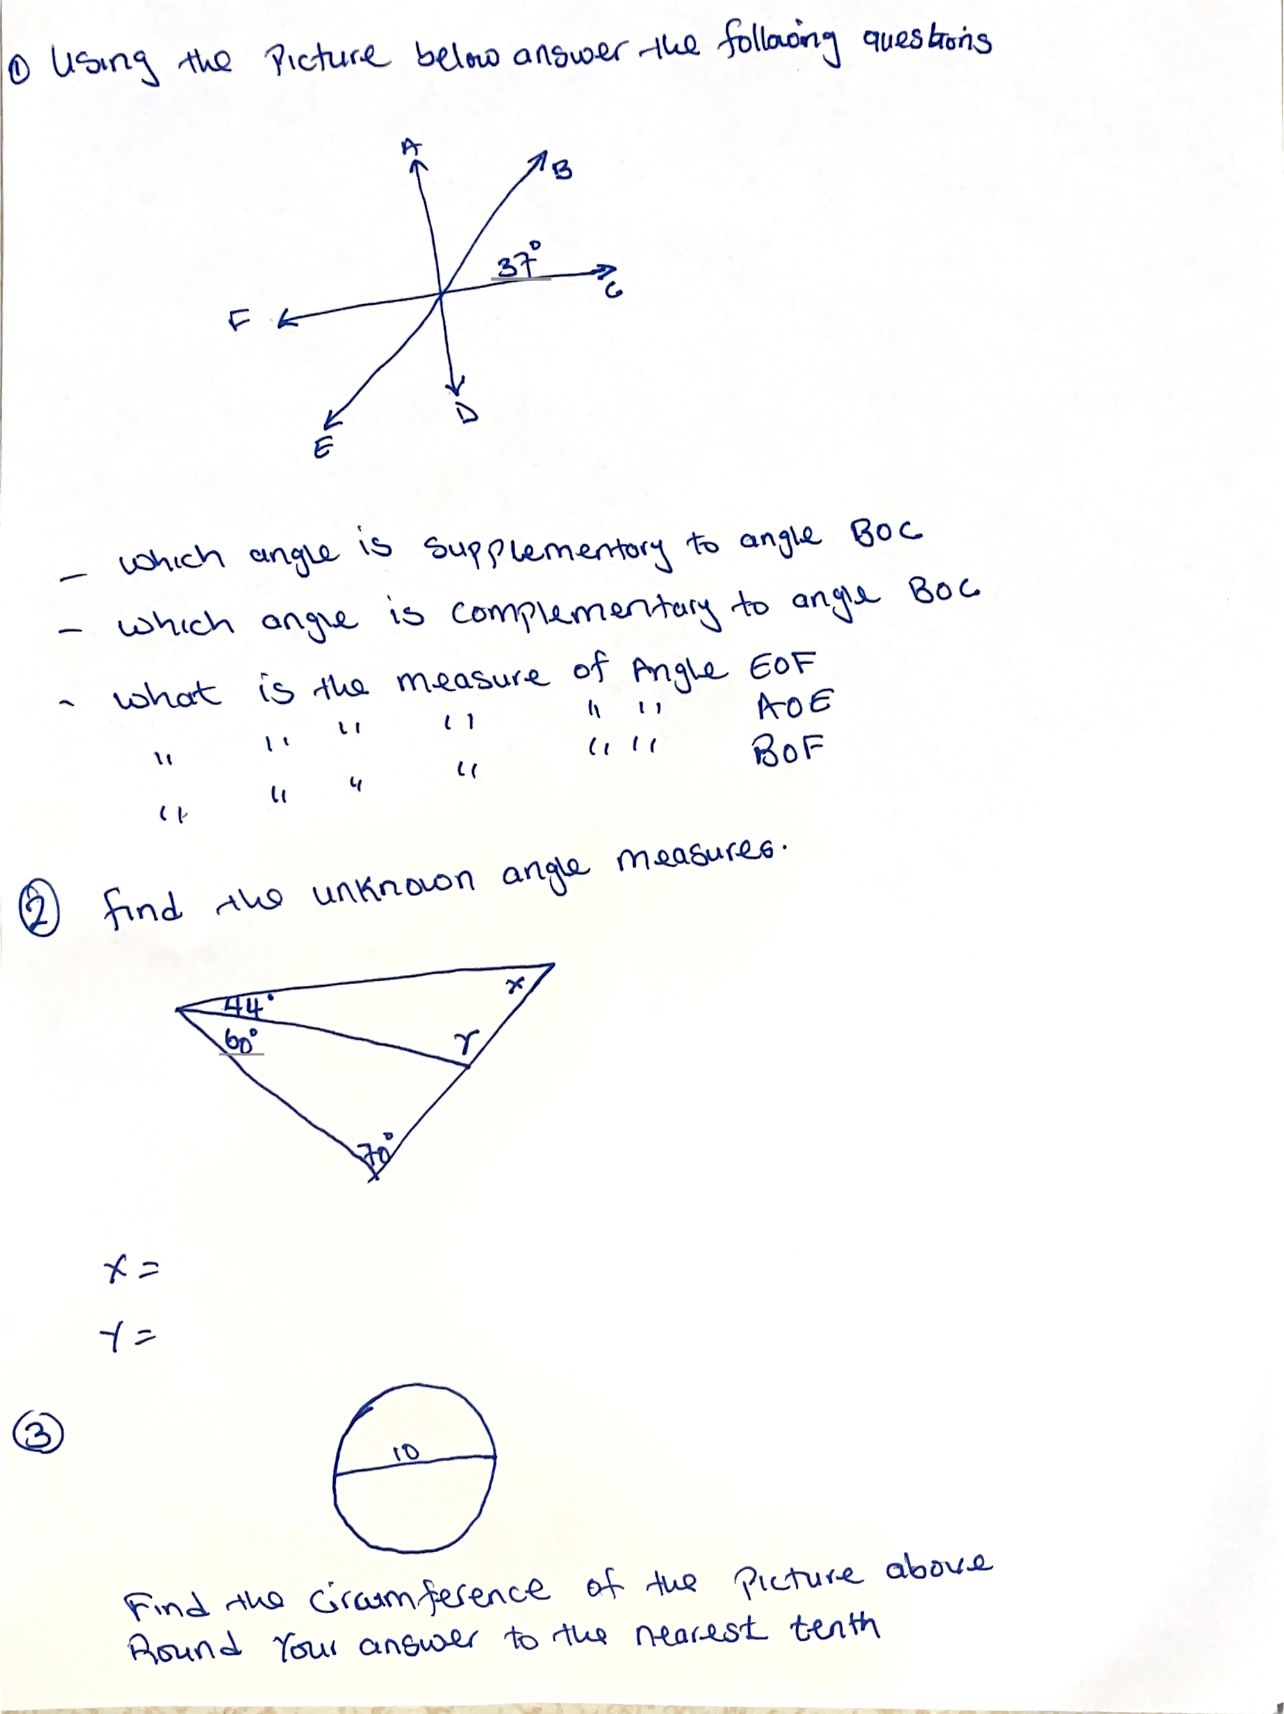 ① Using the Picture below answer the following questions
A
B
37°
C
F
D
E
- which angle is supplementory to angle BOC
- which angle is complementary to angle BOC
- what is the measure of Angle EOF
" " " " " " AOE
" " " " " " BOF
② find the unknown angle measures.
44°
x
60°
Y
70°
X =
Y =
③
10
Find the circumference of the Picture above
Round Your answer to the nearest tenth